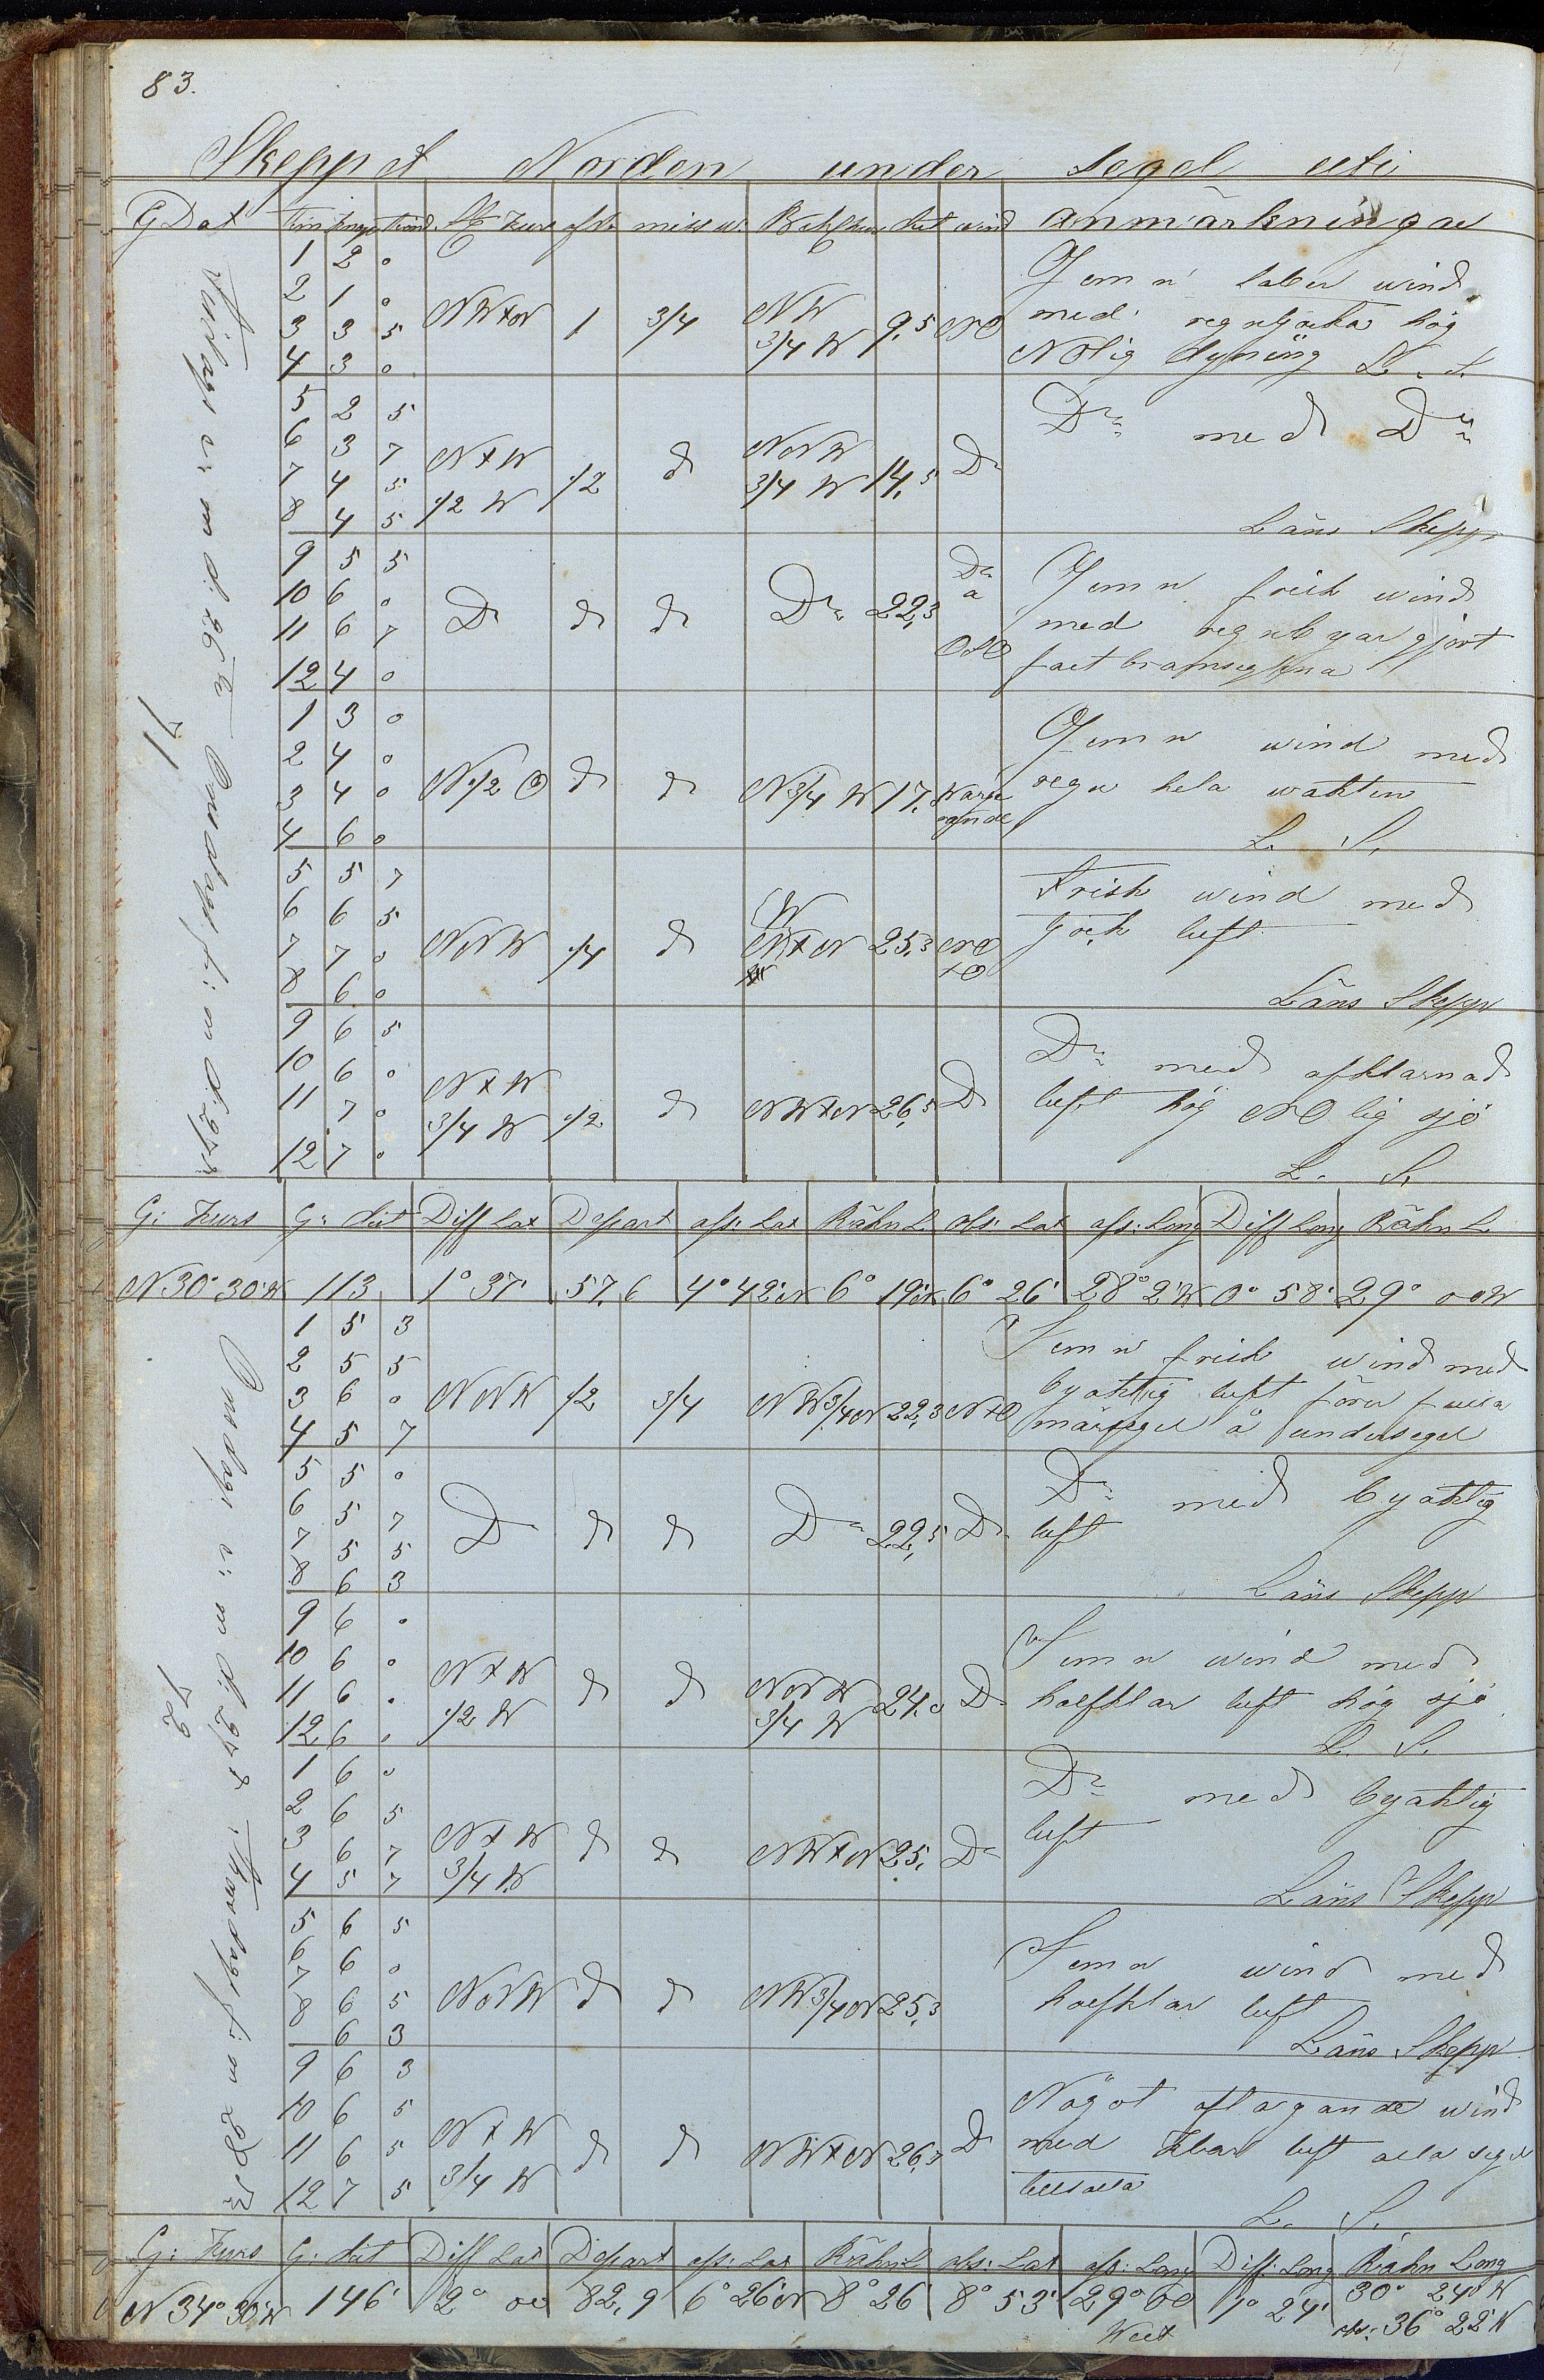 83.
Skeppet Norden under segel uti
G Dat Tim knop St: kurs afdr missw: Beh: kurs dist wind anmärkningar
Tisdags e: m d: 26te Onsdags f: m d: 27de
71
1 2 0 Jemn laber wind
2 1 0 NWtN 1 3/4 NW 3/4 W 9,5 NO med regntjocka hög
3 3 5 NOlig dyning L. S.
4 3 0
5 2 5 Do med Do
6 3 7 NtW 1/2 W 1/2 d NNW 3/4 W 14,5 Do
7 4 5
8 4 5 Läns Skepp
9 5 5 Do a ONO Jemn frisk wind
10 6 0 Do d d Do 22,3 med regnbyar gjort
11 6 7 fast bramseglena
12 4 0
1 3 0 Jemn wind med
2 4 0 N 1/2 O d d N 3/4 W 17, warierande regn hela wakten
3 4 0
4 6 0 L. S.
5 5 7 Frisk wind med
6 6 5 NNW 1/4 d NWtN 25,3 NOtO tjock luft
7 7 0
8 6 0 Läns Skepp
9 6 5 Do med afklarnad
10 6 0 NtW 3/4 W 1/2 d NWtN 26,5 D luft hög NOlig sjö
11 7 0
12 7 0 L. S.
G: Kurs G: dist Diff Lat Depart afs: Lat Räkn L. obs: Lat afs: Long Diff Long Räkn L.
N 30° 30' W 113 1° 37' 57,6 4° 42' N 6° 19' N 6° 26' 28° 2' W 0° 58' 29° 00 W
Onsdags e: m d: 27de Thorsdags f: m 28de
72
1 5 3 Jemn frisk wind med
2 5 5 byaktig luft förer fulla
3 6 0 NNW 1/2 3/4 NW 3/4 N 22,3 NtO märsegel å undersegel
4 5 7
5 5 0 Do med byaktig
6 5 7 D d d Do 22,5 Do luft
7 5 5
8 6 3 Läns Skepp
9 6 0 Jemn wind med
10 6 0 NtW 1/2 W d d NNW 3/4 W 24,0 D halfklar luft hög sjö
11 6 0
12 6 0 L. S.
1 6 0 Do med byaktig
2 6 5 NtW 3/4 W d d NWtN 25, Do luft
3 6 7
4 5 7 Läns Skepp
5 6 5 Jemn wind med
6 6 0 NNW d d NW 3/4 N 25,3 halfklar luft
7 6 5
8 6 3 Läns Skepp
9 6 3 Något aftagande wind
10 6 5 NtW 3/4 W d d NWtN 26,7 D med klar luft alla segel
11 6 5 tillsatta
12 7 5 L. S.
G: Kurs G: dist Diff Lat Depart afs: Lat Räkn L obs: Lat afs: Long Diff: Long Räkn Long
N 34° 30' W 146' 2° 00 82,9 6° 26' N 8° 26' 8° 53' 29° 00 West 1° 24' 30° 24' W
obs: 36° 22' W